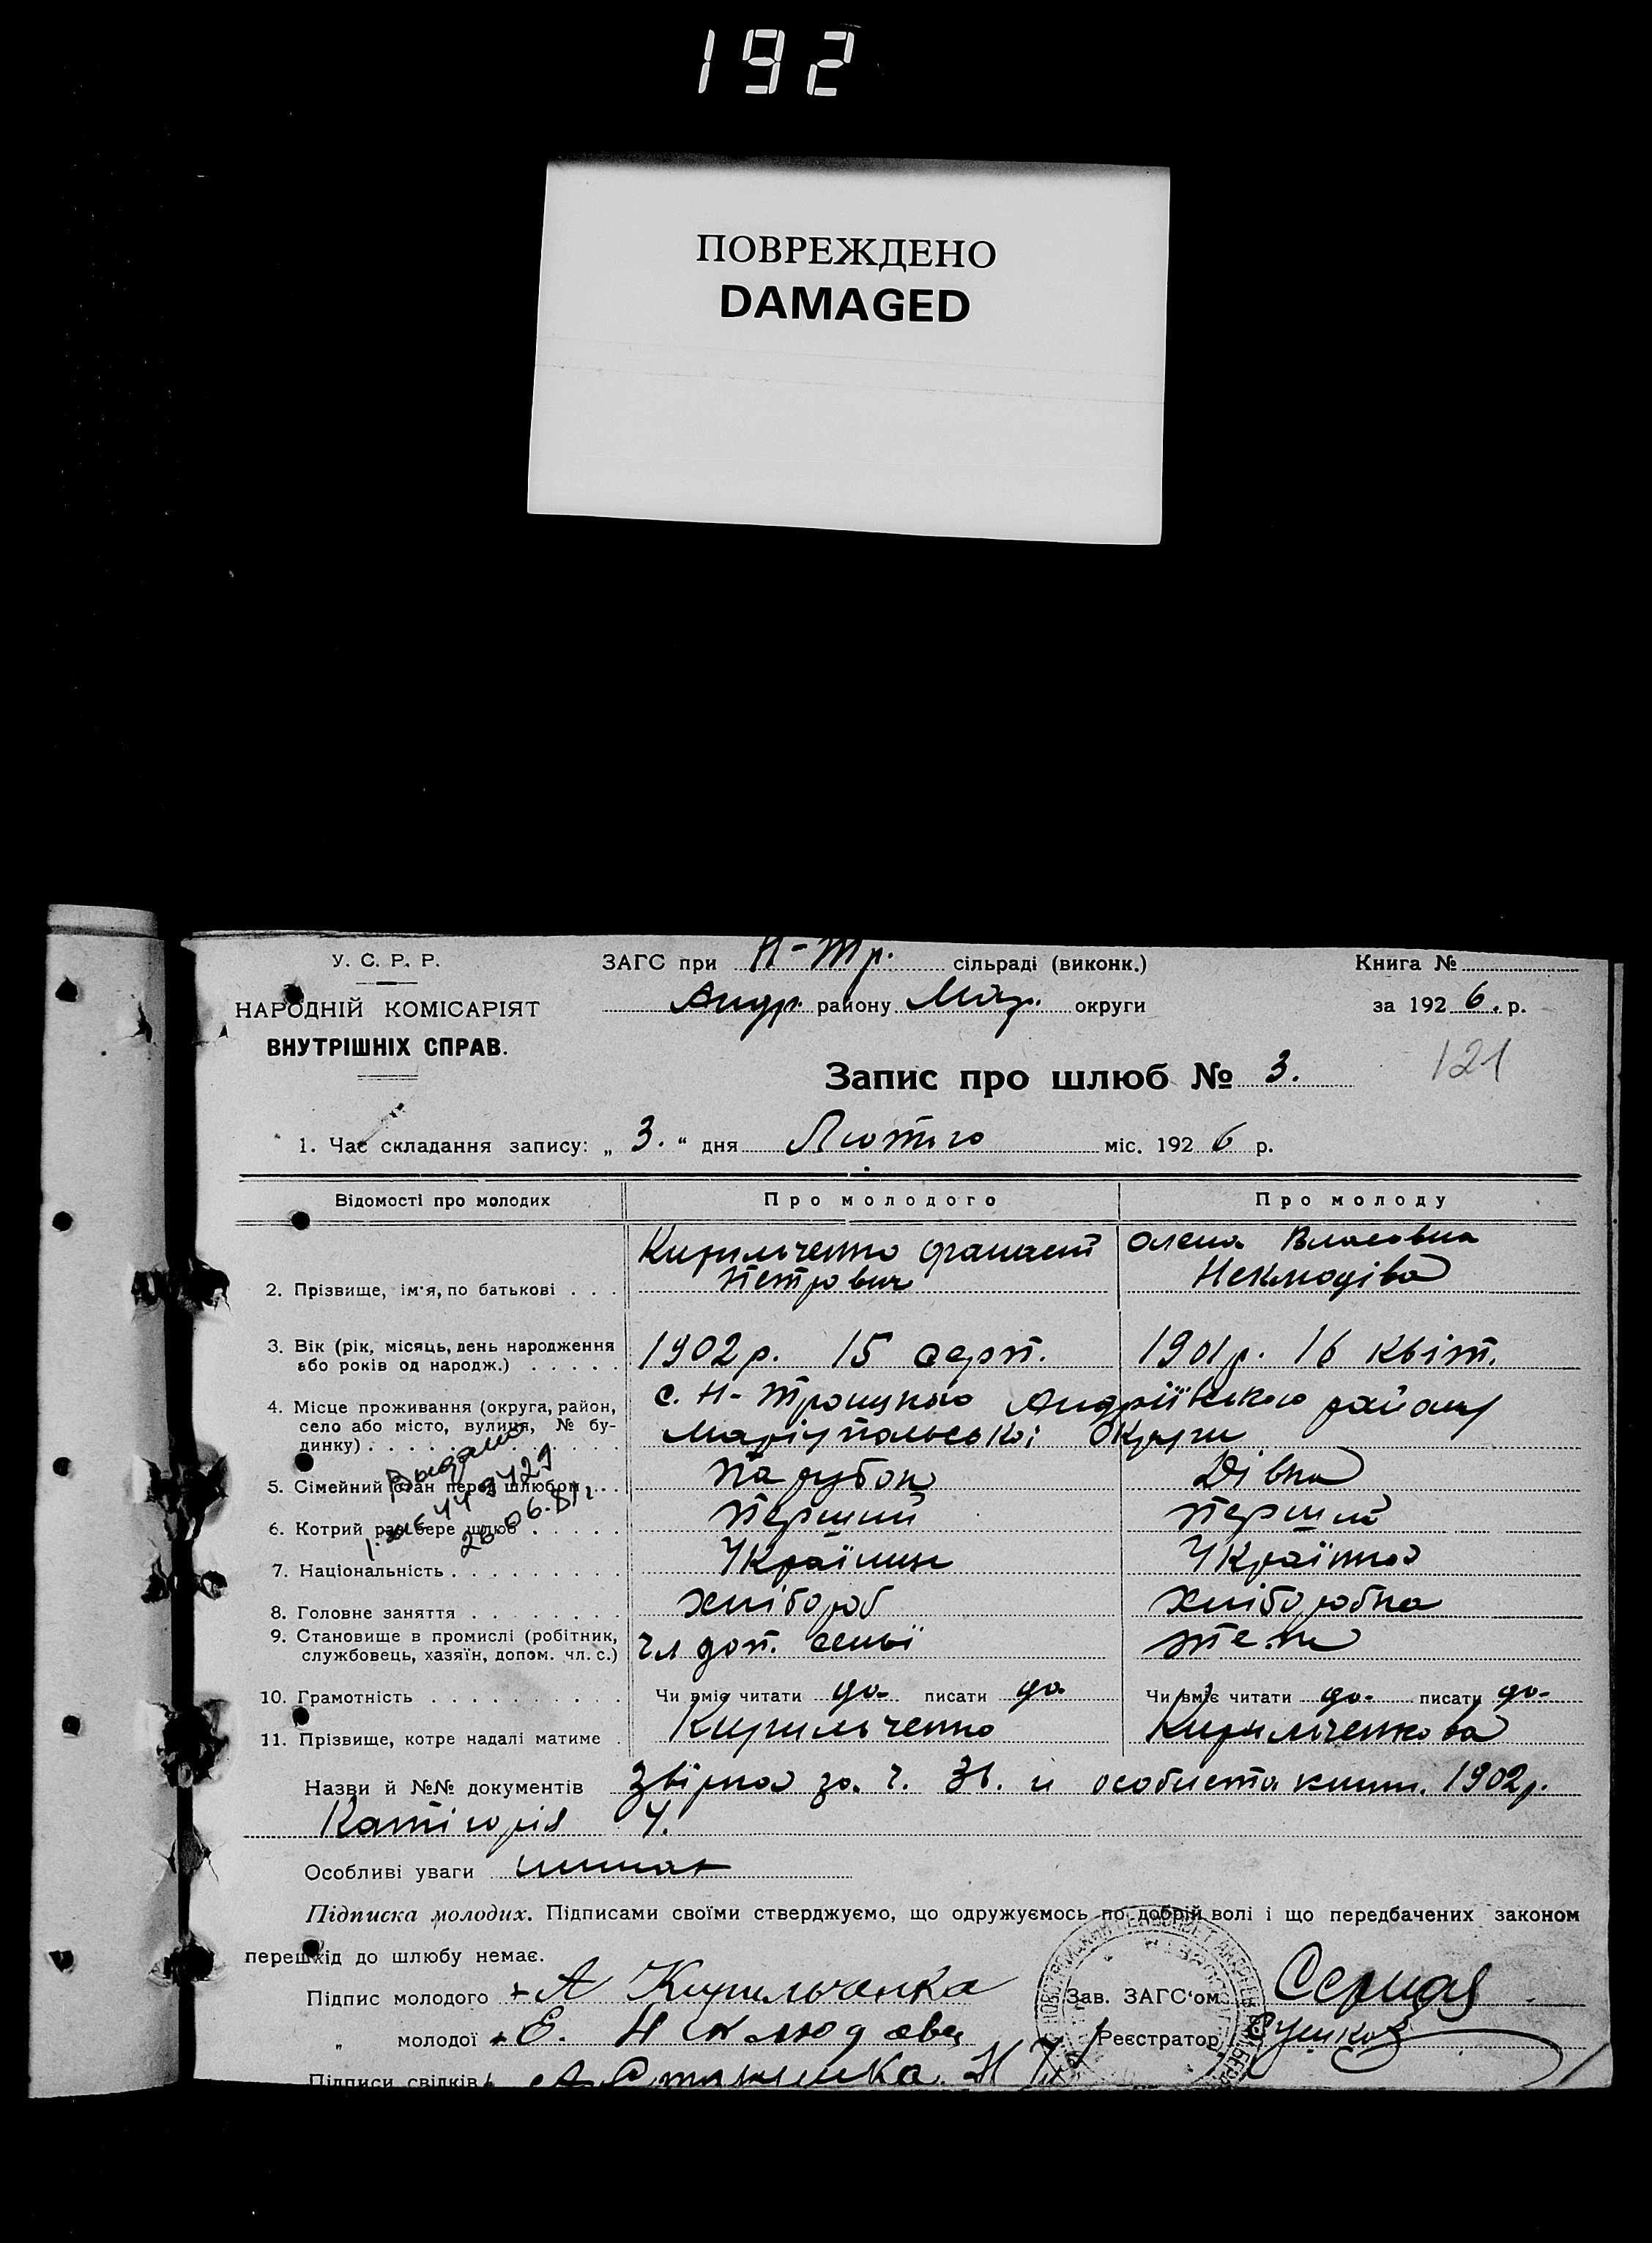 192
ПОВРЕЖДЕНО
DAMAGED
У. С. Р. Р.
НАРОДНІЙ КОМІСАРІЯТ
ВНУТРІШНІХ СПРАВ.
ЗАГС при Н-Тр. сільраді (виконк.)
Андр. району Мар. округи
Книга №
за 1926. р.
121
Запис про шлюб № 3.
1. Час складання запису: „ 3. “ дня Лютого міс. 1926 р.
Відомості про молодих Про молодого Про молоду
2. Прізвище, ім'я, по батькові . . . Кирильченко Фанаст Петрович Олена Власовна Неклюдіва
3. Вік (рік, місяць, день народження
або років од народж.) . . . . . 1902 р. 15 серп. 1901 р. 16 квіт.
4. Місце проживання (округа, район,
село або місто, вулиця, № бу-
динку) . . . . с. Н-Троицько Андріївського району
Маріупольської Округи
Видано
5. Сімейний стан перед шлюбом . . . Парубок Дівка
6. Котрий раз бере шлюб . . . . . Перший Перший
26.06.81г
7. Національність . . . . . . . . . Українец Українка
8. Головне заняття . . . . . . . . хлібороб Хліборобка
9. Становище в промислі (робітник,
службовець, хазяїн, допом. чл. с.) чл доп. семьї
10. Грамотність . . . . . . . . . . Чи вміє читати да- писати да Чи вміє читати да- писати да-
11. Прізвище, котре надалі матиме . Кирильченко Кирильченкова
Назви й №№ документів Звірка за. ч. 36. и особиста книж. 1902 р.
Катігорія
Особливі уваги
Підписка молодих. Підписами своїми стверджуємо, що одружуємось по добрій волі і що передбачених законом
перешкід до шлюбу немає.
Підпис молодого + А Кирильченка Зав. ЗАГС'ом
„ молодої + Е. Неклюдова Реєстратор
Підписи свідків